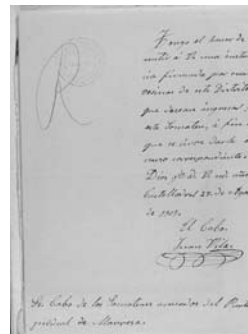 R
Tengo el honor de
mitir á V. una instan
cia firmada por
vecinos de este Distrito
que desean ingresar
este Somatén, á fin
que se sirva darle el
curso correspondiente.
Dios gde. á V. ms. años
Castellar 28 de
de 1909.
El Cabo.
Juan Vila
Sr. Cabo de los Somatenes armados del Par
judicial de Manresa.